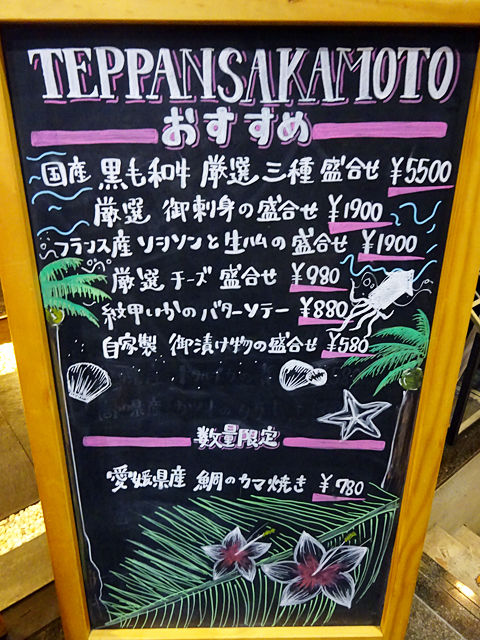 TEPPANSAKAMOTO
おすすめ
国産 黒毛和牛 厳選 三種 盛合せ ¥5500
厳選 御刺身の盛合せ ¥1900
フランス産 ソシソンと生ハムの盛合せ ¥1900
厳選 チーズ 盛合せ ¥980
紋甲いかのバターソテー ¥880
自家製 御漬け物の盛合せ ¥580
数量限定
愛媛県産 鯛のカマ焼き ¥780